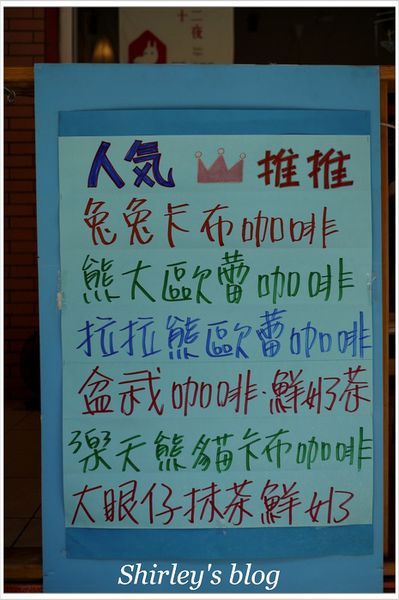 十二夜
人気 推推
兔兔卡布咖啡
熊大歐蕾咖啡
拉拉熊歐蕾咖啡
盆栽咖啡·鮮奶茶
樂天熊貓卡布咖啡
大眼仔抹茶鮮奶
Shirley's blog